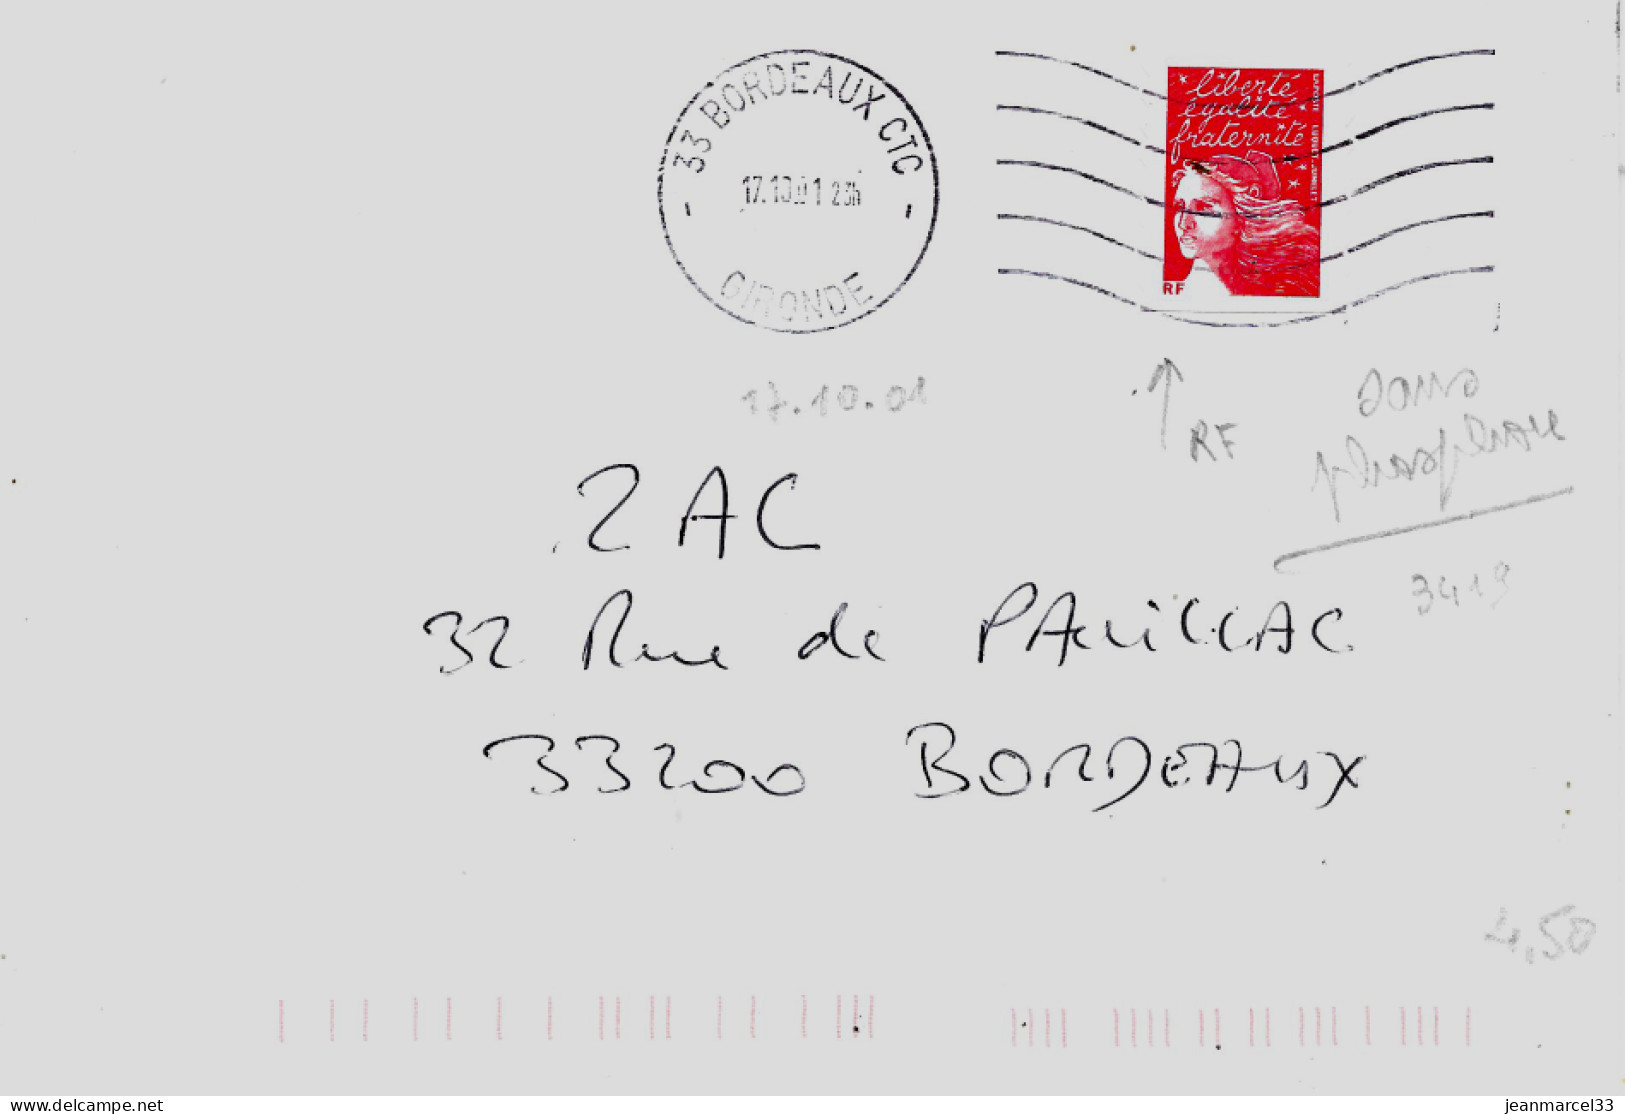 33 BORDEAUX CTC
17.10.01 23H
GIRONDE
liberté
égalité
fraternité
LA POSTE LUQUET JUMELET
RF
17.10.01
RF
sans
phosphore
3419
ZAC
32 Rue de PAUILLAC
33200 BORDEAUX
4,50
www.delcampe.net
jeanmarcel33